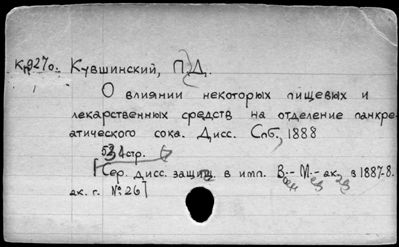 Кувшинский, П.Д.
О влиянии некоторых пищевых и
лекарственных средств на отделение панкре-
атического сока. Дисс. Спб., 1888
стр.
Сер. дисс. защищ. в имп. Воен.-Мед. ак. в 1887-8.
ак. г. № 26